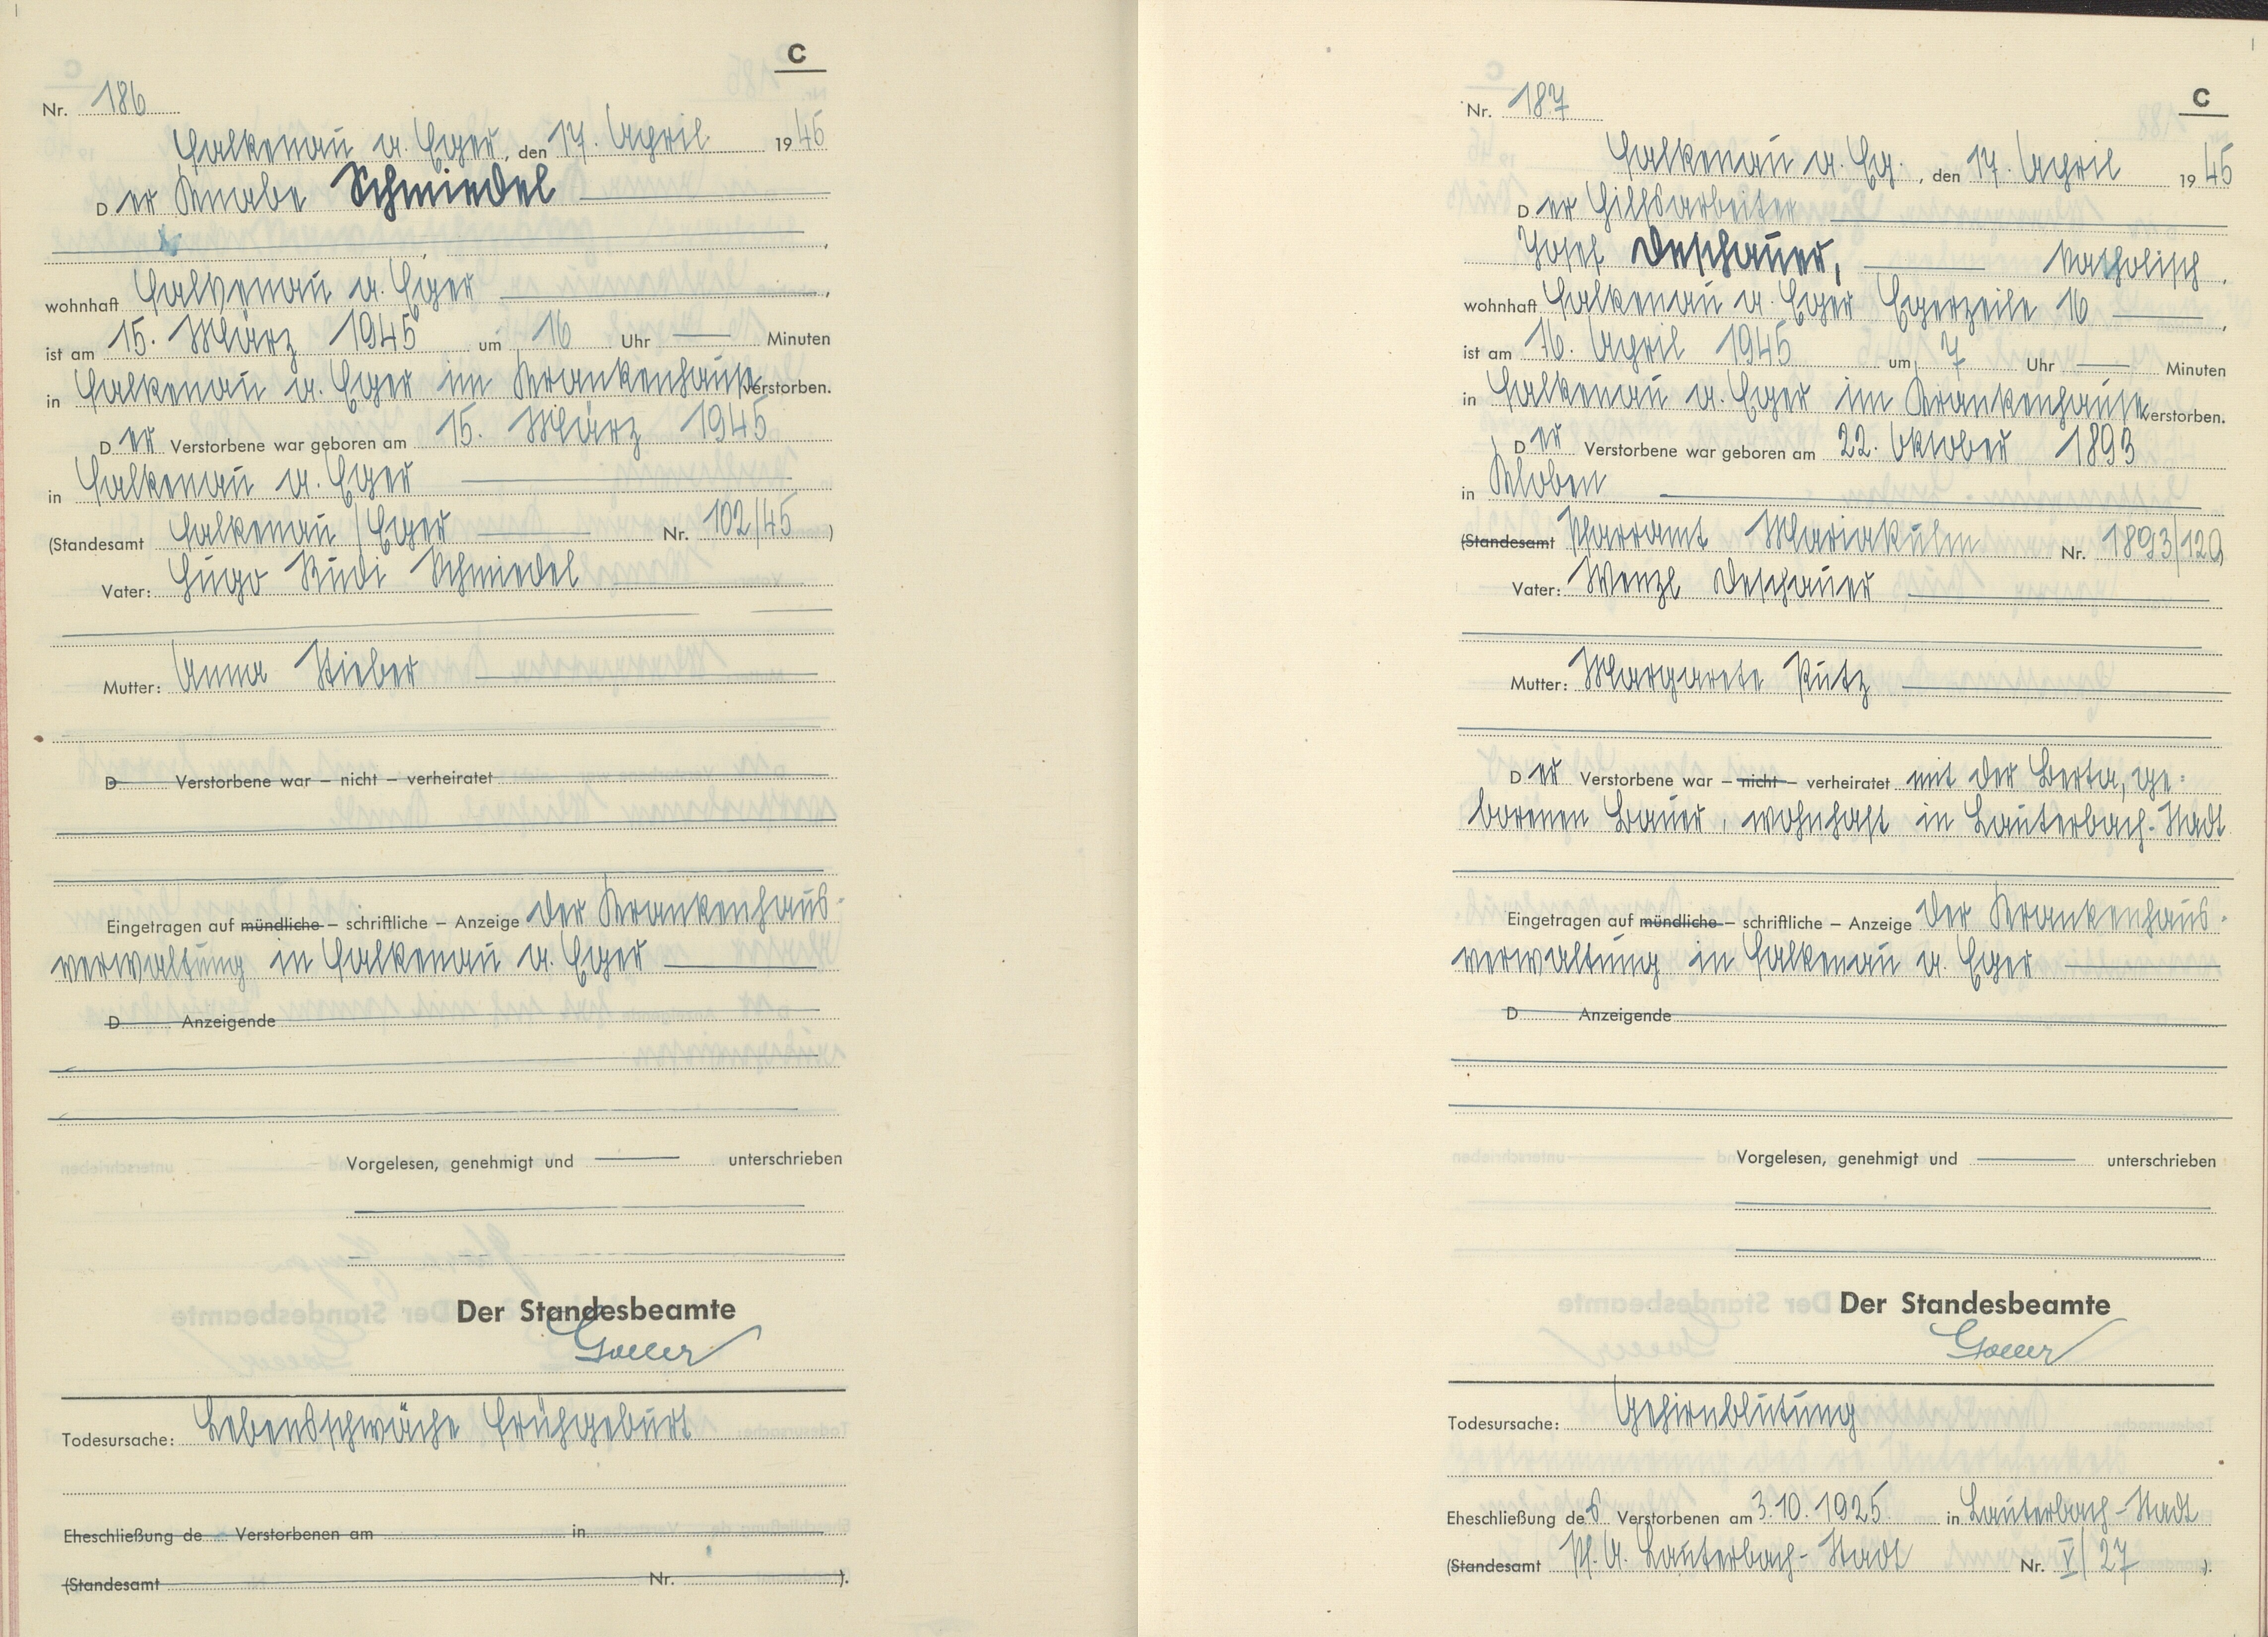 C
Nr. 186
Falkenau a. Eger, den 17. April 1945
Der Knabe Schmiedel
,
wohnhaft Falkenau a. Eger ,
ist am 15. März 1945 um 16 Uhr — Minuten
in Falkenau a. Eger im Krankenhause verstorben.
Der Verstorbene war geboren am 15. März 1945
in Falkenau a. Eger
(Standesamt Falkenau / Eger Nr. 102/45 )
Vater: Hugo Rudi Schmiedel
Mutter: Anna Stieber
D Verstorbene war – nicht – verheiratet
Eingetragen auf mündliche – schriftliche – Anzeige der Krankenhaus-
verwaltung in Falkenau a. Eger
D Anzeigende
Vorgelesen, genehmigt und — unterschrieben
Der Standesbeamte
Goller
Todesursache: Lebensschwäche Frühgeburt
Eheschließung de Verstorbenen am in
(Standesamt Nr. ).
C
Nr. 187
Falkenau a. Eg., den 17. April 1945
Der Hilfsarbeiter
Josef Deschauer, — katholisch,
wohnhaft Falkenau a. Eger Egerzeile 16 ,
ist am 16. April 1945 um 7 Uhr — Minuten
in Falkenau a. Eger im Krankenhause verstorben.
Der Verstorbene war geboren am 22. Oktober 1893
in Kloben
(Standesamt Pfarramt Mariakulm Nr. 1893/129)
Vater: Wenzl Deschauer
Mutter: Margarete Putz
Der Verstorbene war – nicht – verheiratet mit der Berta, ge-
borenen Bauer, wohnhaft in Lauterbach-Stadt
Eingetragen auf mündliche – schriftliche – Anzeige der Krankenhaus-
verwaltung in Falkenau a. Eger
D Anzeigende
Vorgelesen, genehmigt und — unterschrieben
Der Standesbeamte
Goller
Todesursache: Gehirnblutung
Eheschließung des Verstorbenen am 3.10.1925 in Lauterbach-Stadt
(Standesamt Pf. A. Lauterbach-Stadt Nr. V/27 ).